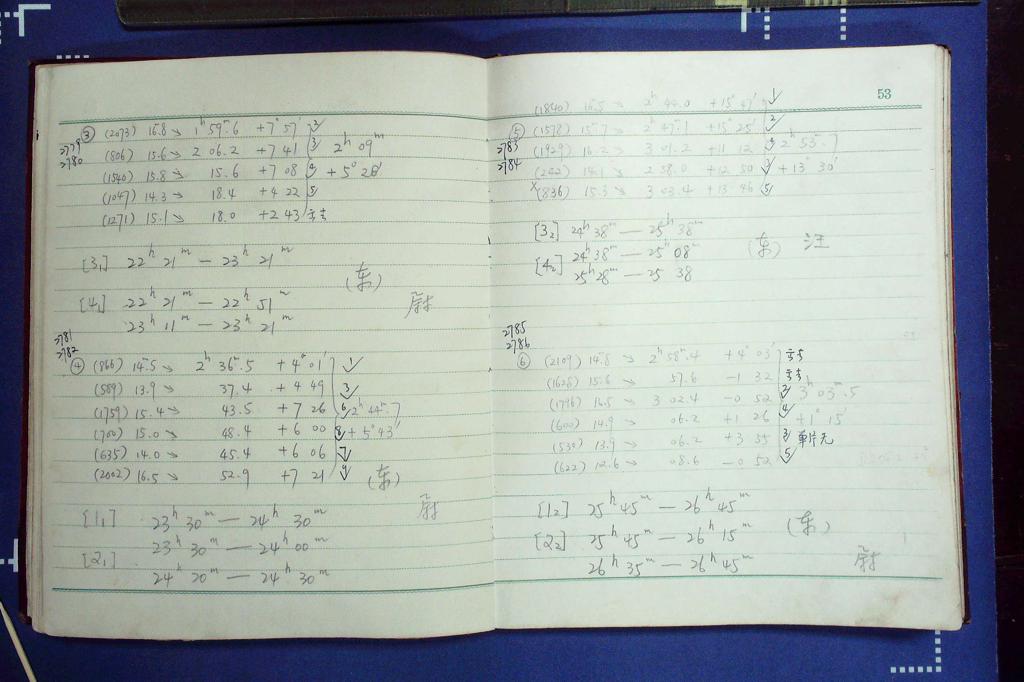 2779
2780
③ (2073) 16.8 → 1ʰ 59ᵐ.6 +7° 57′ 2
(806) 15.6 → 2 06.2 +7 41 3 2ʰ 09ᵐ
(1540) 15.8 → 15.6 +7 08 +5° 28′
(1047) 14.3 → 18.4 +4 22 5
(1271) 15.1 → 18.0 +2 43
[3₁] 22ʰ 21ᵐ — 23ʰ 21ᵐ
(东)
[4₁] 22ʰ 21ᵐ — 22ʰ 51ᵐ
23ʰ 11ᵐ — 23ʰ 21ᵐ
2781
2782
④ (866) 14.5 → 2ʰ 36ᵐ.5 +4° 01′ 1
(589) 13.9 → 37.4 +4 49 3
(1759) 15.4 → 43.5 +7 26 6 2ʰ 44ᵐ.7
(700) 15.0 → 48.4 +6 00 8 +5° 43′
(635) 14.0 → 45.4 +6 06 7
(2002) 16.5 → 52.9 +7 21 9 (东)
[1₁] 23ʰ 30ᵐ — 24ʰ 30ᵐ
23ʰ 30ᵐ — 24ʰ 00ᵐ
[2₁]
24ʰ 20ᵐ — 24ʰ 30ᵐ
53
(1840) 16.5 → 2ʰ 44.0 +15° 47′ 1
2783
2784
⑤ (1578) 15.7 → 2ʰ 47.1 +15° 25′ 2
(1929) 16.2 → 3 01.2 +11 12 2ʰ 53ᵐ.7
(242) 14.1 → 2 58.0 +12 50 3 +13° 30′
×(836) 15.3 → 3 03.4 +13 46 5
[3₂] 24ʰ 38ᵐ — 25ʰ 38ᵐ
(东) 汪
[4₂] 24ʰ 38ᵐ — 25ʰ 08ᵐ
25ʰ 28ᵐ — 25 38
2785
2786
⑥ (2109) 14.8 → 2ʰ 58ᵐ.4 +4° 03′
(1628) 15.6 → 57.6 −1 32
(1796) 16.5 → 3 02.4 −0 52 2 3ʰ 03ᵐ.5
(600) 14.9 → 06.2 +1 26 4 +1° 15′
(530) 13.9 → 06.2 +3 35 3 单片无
(622) 12.6 → 08.6 −0 52 5
[1₂] 25ʰ 45ᵐ — 26ʰ 45ᵐ
(东)
[2₂] 25ʰ 45ᵐ — 26ʰ 15ᵐ
26ʰ 35ᵐ — 26ʰ 45ᵐ